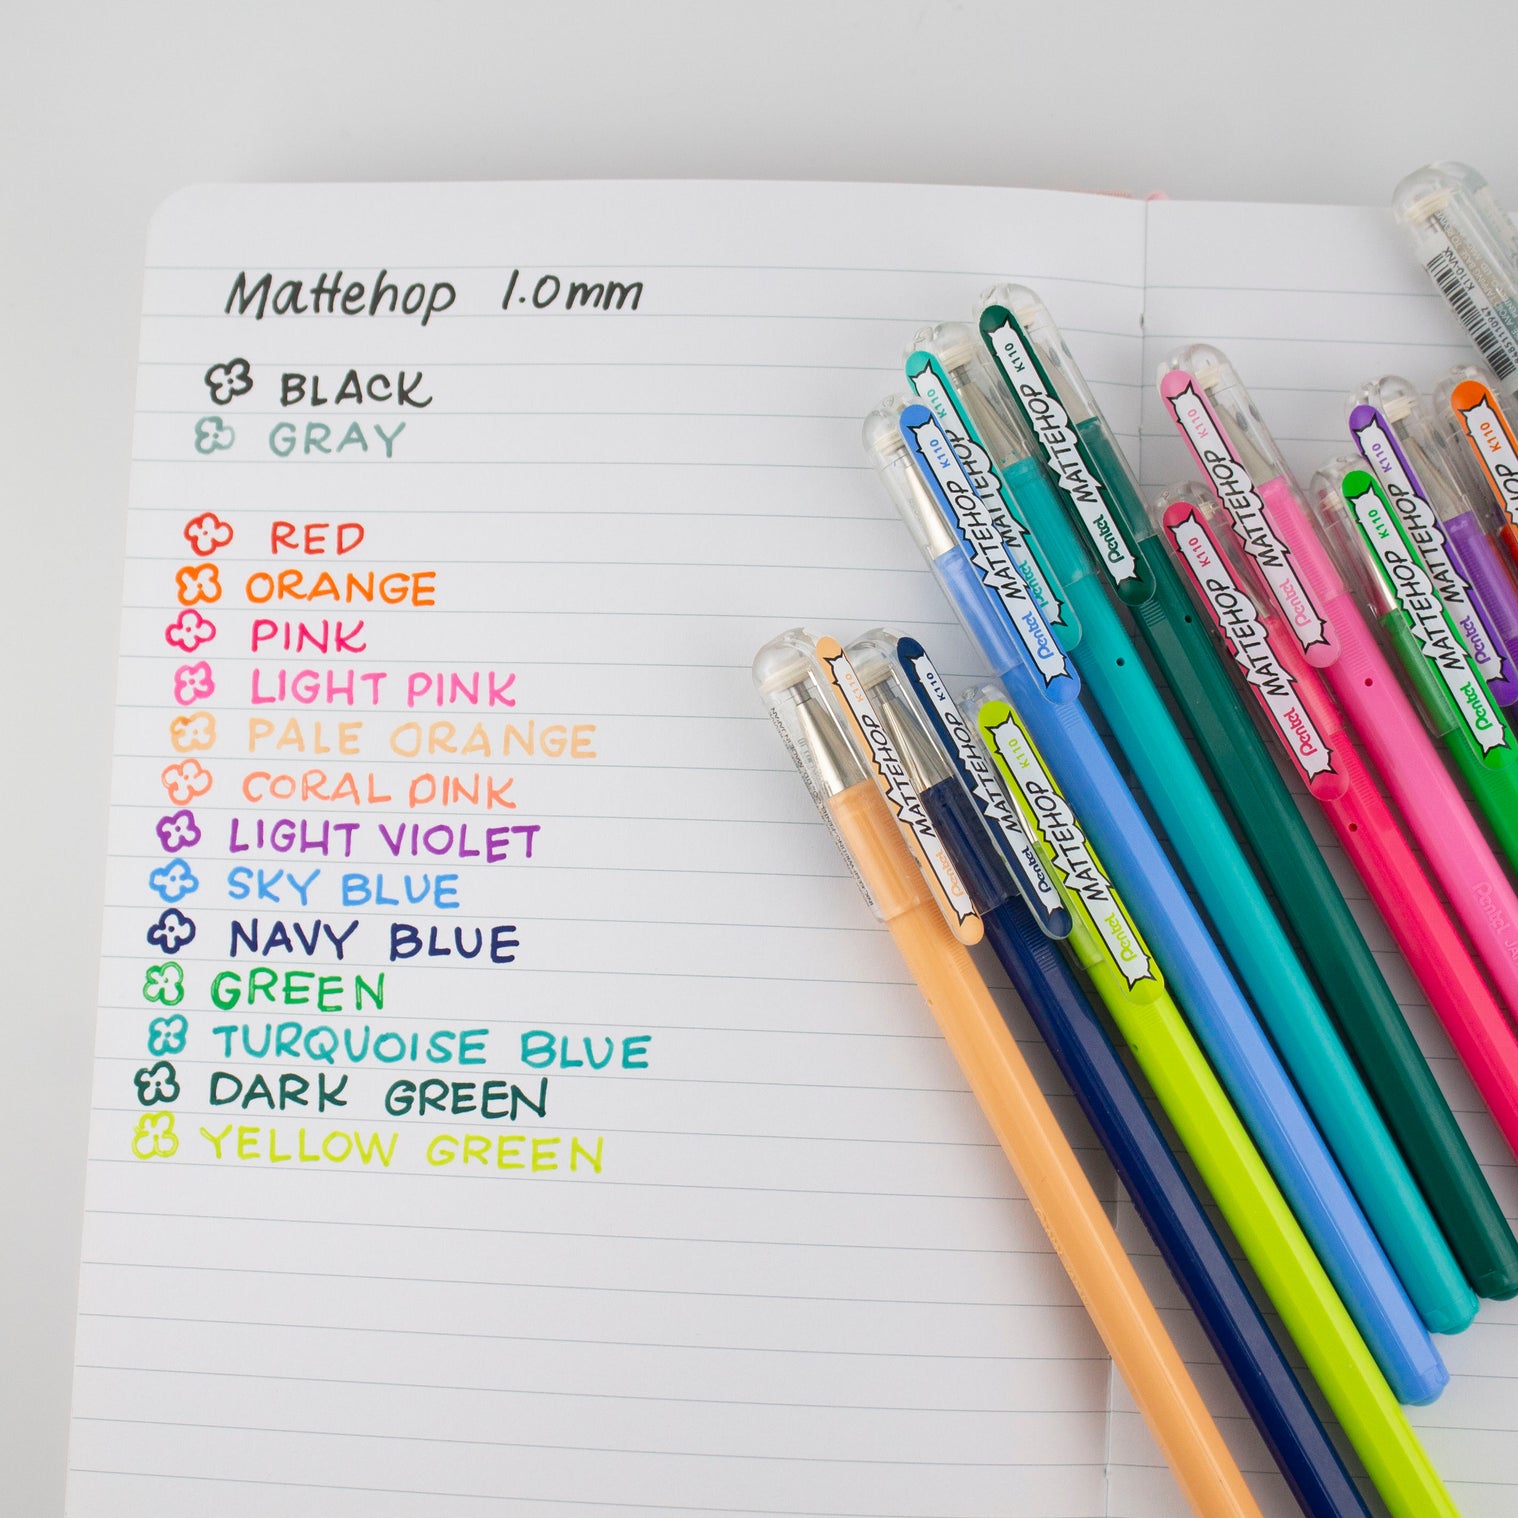 Mattehop 1.0mm
BLACK
GRAY
RED
ORANGE
PINK
LIGHT PINK
PALE ORANGE
CORAL PINK
LIGHT VIOLET
SKY BLUE
NAVY BLUE
GREEN
TURQUOISE BLUE
DARK GREEN
YELLOW GREEN
Pentel MATTEHOP K110
Pentel MATTEHOP K110
Pentel MATTEHOP K110
Pentel MATTEHOP K110
Pentel MATTEHOP K110
Pentel MATTEHOP K110
Pentel MATTEHOP K110
Pentel MATTEHOP K110
Pentel MATTEHOP K110
Pentel MATTEHOP K110
K110
K110-VNX
Pentel